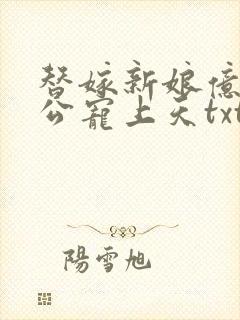 替嫁新娘億
公寵上天txt
陽雪旭